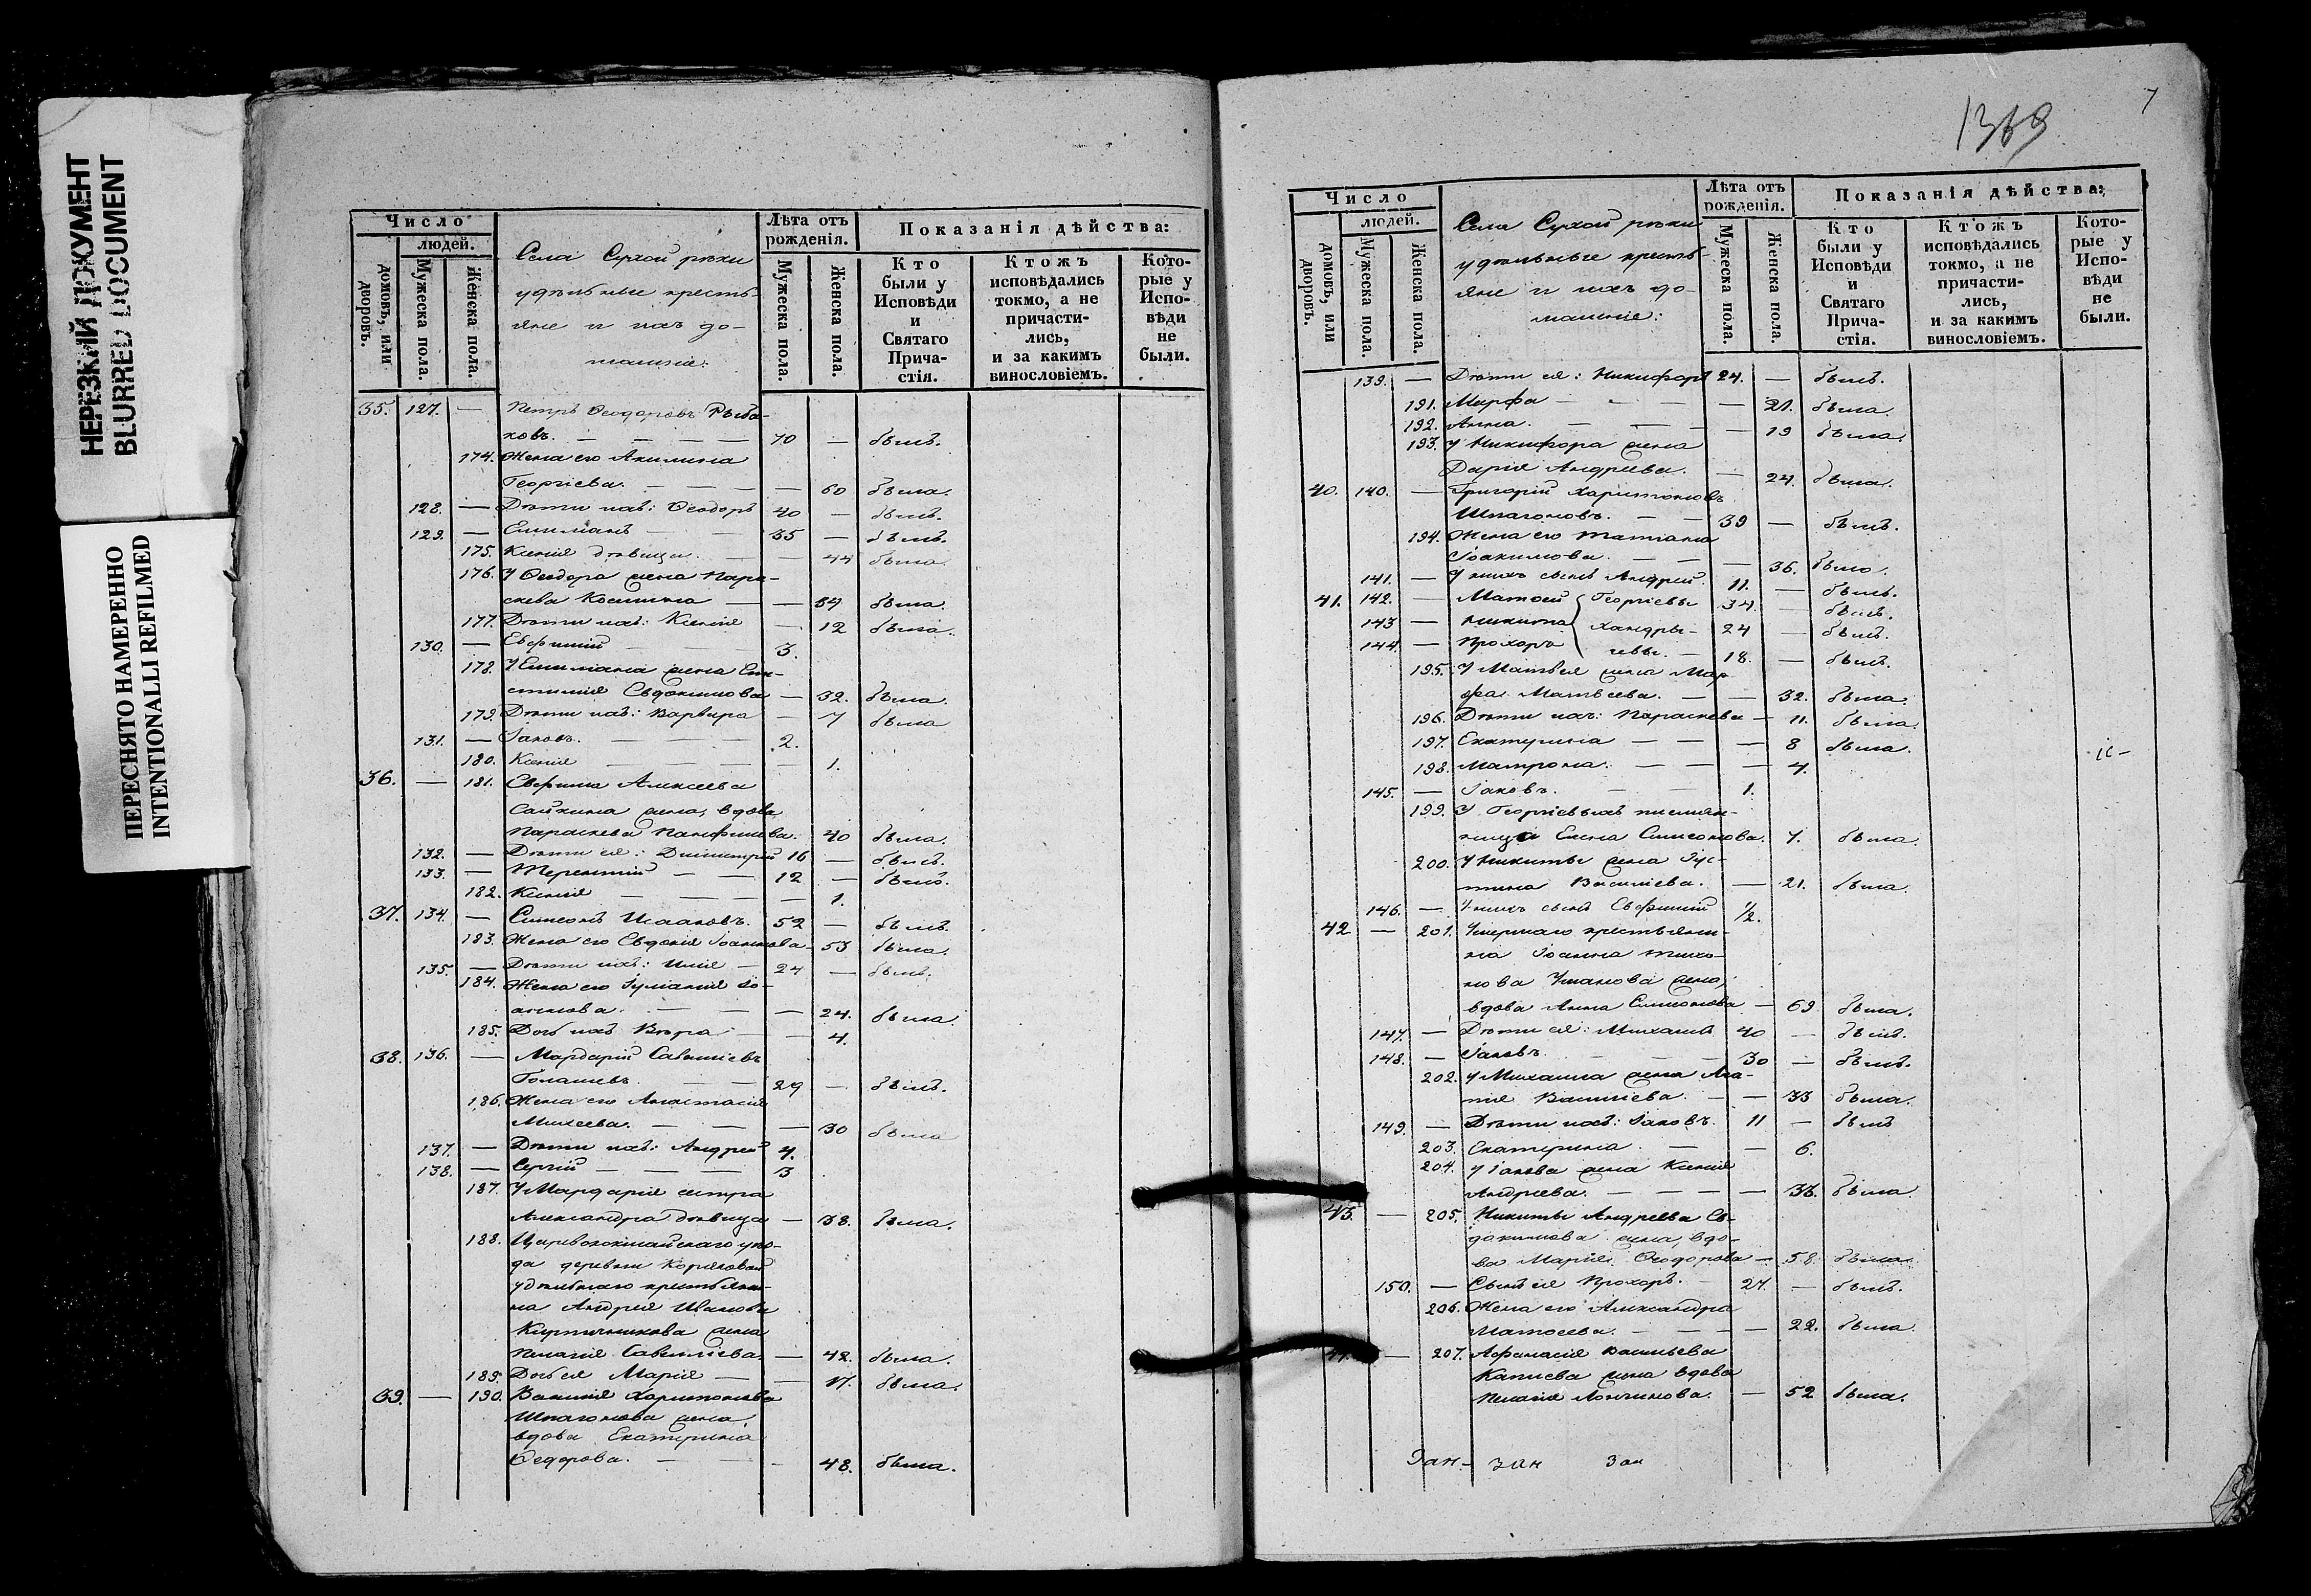 НЕРЕЗКИЙ ДОКУМЕНТ
BLURRED DOCUMENT
ПЕРЕСНЯТО НАМЕРЕННО
INTENTIONALLI REFILMED
Число
людей.
домовъ, или дворовъ.
Мужеска пола.
Женска пола.
Села Сухой рѣки
удѣльные кресть-
яне и ихъ до-
машніе:
Лѣта отъ рожденія.
Мужеска пола.
Женска пола.
Показанія дѣйства:
Кто были у Исповѣди и Святаго Прича- стія.
Ктожъ исповѣдались токмо, а не причасти- лись, и за какимъ винословіемъ.
Кото- рые у Испо- вѣди не были.
35. 127. — Петръ Ѳеодоровъ Рыба-
ковъ. — 70 — былъ.
174. Жена его Акилина
Георгіева. — 60 была.
128. — Дѣти ихъ: Ѳеодоръ 40 — былъ.
129. — Емиліанъ — 35 — былъ.
175. Ксенія дѣвица. — 44 была
176. У Ѳеодора жена Пара-
скева Космина — 34 была.
177. Дѣти ихъ: Ксенія — 12 была.
130. — Евфимій 3.
178. У Емиліана жена
Евдокимова — 32. была.
179. Дѣти ихъ: Варвара — 7 была
131. — Іаковъ. — 2.
180. Ксенія — 1.
36. — 181. Алексѣева
жена, вдова
Параскева Панфилова. 40 была.
132. — Дѣти ея: Димитрій 16 — былъ.
133. — Терентій — 12 — былъ.
182. Ксенія — 1.
37. 134. — Симеонъ Исааковъ. 52 — былъ.
183. Жена его Евдокія — 53 была.
135. — Дѣти ихъ: Илія — 24 — былъ.
184. Жена его Іуліанія Іо-
— 24. была.
185. Дочь ихъ Вѣра — 4.
38. 136. — Мардарій Савельевъ
— 29 — былъ.
186. Жена его Анастасія
Михеева. — 30 была
137. — Дѣти ихъ: Андрей 4.
138. — Сергій — 3
187. У Мардарія сестра
Александра дѣвица — 38. была.
188. Царевококшайскаго уѣз-
да деревни Коряковой
удѣльнаго крестьяни-
на Андрея Иванова
Кирпичникова жена
Пелагія Савельева. — 42. была.
189. Дочь ея Марія — 17. была.
39. — 190. Василія Харитонова
Шпагонова жена,
вдова Екатерина
Ѳедорова. — 48. была.
1369
7
Число
людей.
домовъ, или дворовъ.
Мужеска пола.
Женска пола.
Села Сухой рѣки
удѣльные кресть-
яне и ихъ до-
машніе:
Лѣта отъ рожденія.
Мужеска пола.
Женска пола.
Показанія дѣйства:
Кто были у Исповѣди и Святаго Прича- стія.
Ктожъ исповѣдались токмо, а не причасти- лись, и за какимъ винословіемъ.
Кото- рые у Испо- вѣди не были.
139. — Дѣти ея: Никифоръ 24. — былъ.
191. Марфа — 21. была.
192. Анна. — 19 была.
193. У Никифора жена
Дарія Андреева. — 24. была.
40. 140. — Григорій Харитоновъ
Шпагоновъ. — 39 — былъ.
194. Жена его Татіана
Іоакимова. — 36. была.
141. — У нихъ сынъ Андрей. 11. — былъ.
41. 142. — Матѳей Георгіевы 34. — былъ.
143 — Никита Хандры- 24 — былъ.
144. — Прохоръ чевы. — 18. — былъ.
195. У Матвея жена Мар-
фа Матвеева. — 32. была.
196. Дѣти ихъ: Параскева — 11. была.
197. Екатерина — 8 была.
198. Матрона. — 4.
145. — Іаковъ. — 1.
199. У Георгіевыхъ племян-
ница Елена Симеонова. 7. была.
200. У Никиты жена Іус-
тина Васильева. — 21. была.
146. — У нихъ сынъ Евфимій 1/2.
42 — 201. Умершаго крестьяни-
на Іоанна Тихо-
нова Ушакова жена,
вдова Анна Симеонова — 69 была.
147. — Дѣти ея: Михаилъ 40 — былъ.
148. — Іаковъ. — 30 — былъ.
202. У Михаила жена Ага-
пія Васильева. — 33 была.
149. — Дѣти ихъ: Іаковъ. 11 — былъ
203. Екатерина. — 6.
204. У Іакова жена Ксенія
Андреева. — 33. была.
43. — 205. Никиты Андреева Ев-
докимова жена, вдо-
ва Марія Ѳеодорова — 58. была
150. — Сынъ ея Прохоръ. 27. — былъ.
206. Жена его Александра
Матѳеева. — 22. была.
— 207. Аѳанасія Васильева
жена вдова
Пелагія Логгинова. — 52 была.
зан зан